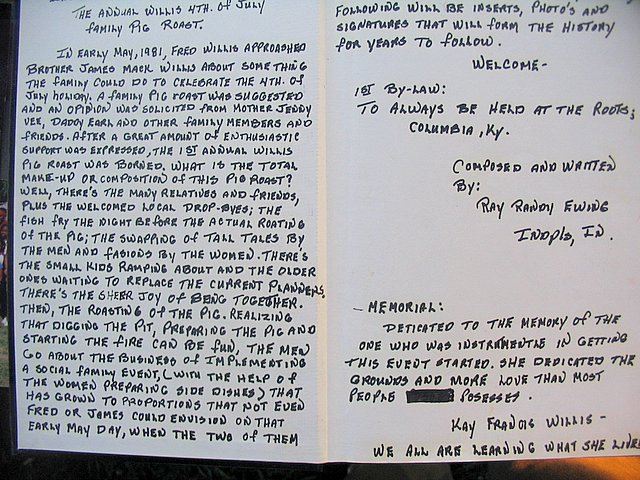 THE ANNUAL WILLIS 4TH. OF JULY
FAMILY PIG ROAST.
IN EARLY MAY, 1981, FRED WILLIS APPROACHED
BROTHER JAMES MACK WILLIS ABOUT SOME THING
THE FAMILY COULD DO TO CELEBRATE THE 4TH. OF
JULY HOLIDAY. A FAMILY PIG ROAST WAS SUGGESTED
AND AN OPINION WAS SOLICITED FROM MOTHER JENNY
VEE, DADDY EARL AND OTHER FAMILY MEMBERS AND
FRIENDS. AFTER A GREAT AMOUNT OF ENTHUSIASTIC
SUPPORT WAS EXPRESSED, THE 1ST ANNUAL WILLIS
PIG ROAST WAS BORNED. WHAT IS THE TOTAL
MAKE-UP OR COMPOSITION OF THIS PIG ROAST?
WELL, THERE'S THE MANY RELATIVES AND FRIENDS,
PLUS THE WELCOMED LOCAL DROP-BYES; THE
FISH FRY THE NIGHT BEFORE THE ACTUAL ROATING
OF THE PIG; THE SWAPPING OF TALL TALES BY
THE MEN AND FASIONS BY THE WOMEN. THERE'S
THE SMALL KIDS RAMPING ABOUT AND THE OLDER
ONES WAITING TO REPLACE THE CURRENT PLANNERS.
THERE'S THE SHEER JOY OF BEING TOGETHER.
THEN, THE ROASTING OF THE PIG. REALIZING
THAT DIGGING THE PIT, PREPARING THE PIG AND
STARTING THE FIRE CAN BE FUN, THE MEN
GO ABOUT THE BUSINESS OF IMPLEMENTING
A SOCIAL FAMILY EVENT, (WITH THE HELP OF
THE WOMEN PREPARING SIDE DISHES) THAT
HAS GROWN TO PROPORTIONS THAT NOT EVEN
FRED OR JAMES COULD ENVISION ON THAT
EARLY MAY DAY, WHEN THE TWO OF THEM
FOLLOWING WILL BE INSERTS, PHOTO'S AND
SIGNATURES THAT WILL FORM THE HISTORY
FOR YEARS TO FOLLOW.
WELCOME-
1ST BY-LAW:
TO ALWAYS BE HELD AT THE ROOTS;
COLUMBIA, KY.
COMPOSED AND WRITTEN
BY:
RAY RANDY EWING
INDPLS, IN.
- MEMORIAL:
DETICATED TO THE MEMORY OF THE
ONE WHO WAS INSTRUMENTLE IN GETTING
THIS EVENT STARTED. SHE DEDICATED THE
GROUNDS AND MORE LOVE THAN MOST
PEOPLE POSESSES.
KAY FRANCIS WILLIS -
WE ALL ARE LEARNING WHAT SHE LIVED